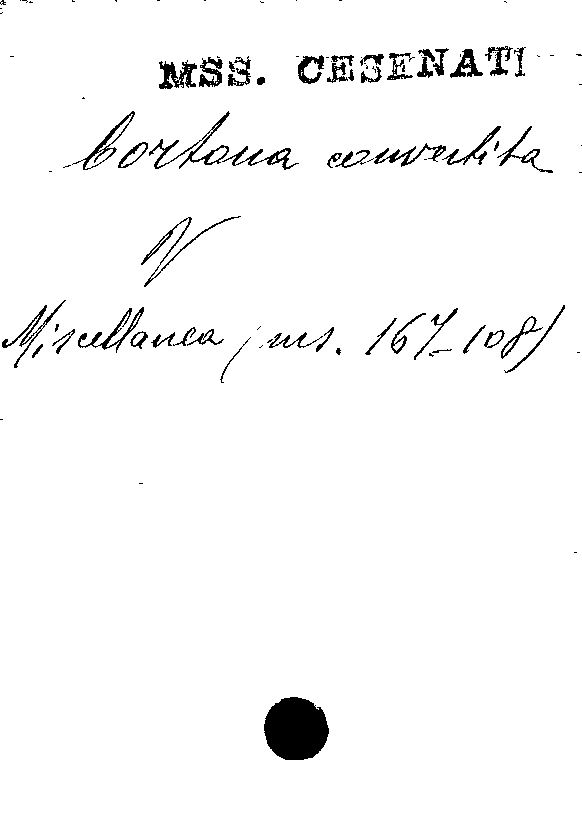 MSS. CESENATI
Cortona convertita
V
Miscellanea (ms. 167-108)